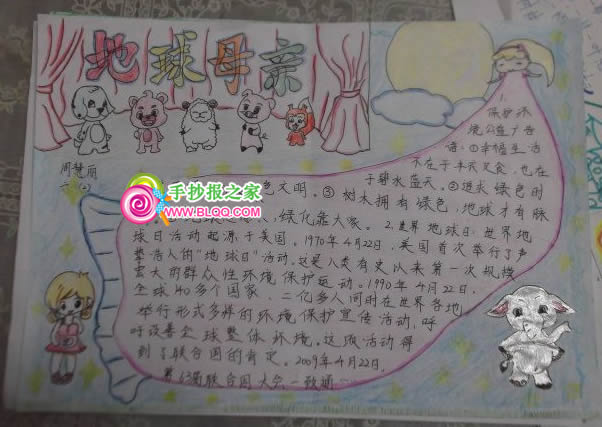 地球母亲
周慧丽
一（2）
保护环
境公益广告
语：①幸福生活
不在于丰衣足食，也在
于碧水蓝天。②追求绿色时
色文明。③树木拥有绿色，地球才有脉
，绿化靠大家。2.世界地球日：世界地
球日活动起源于美国。1970年4月22日，美国首次举行了声
势浩大的“地球日”活动。这是人类有史以来第一次规模
宏大的群众性环境保护运动。1990年4月22日，
全球140多个国家、二亿多人同时在世界各地
举行形式多样的环境保护宣传活动，呼
吁改善全球整体环境。这项活动得
到了联合国的肯定。2009年4月22日，
第63届联合国大会一致通
手抄报之家
WWW.BLQQ.COM